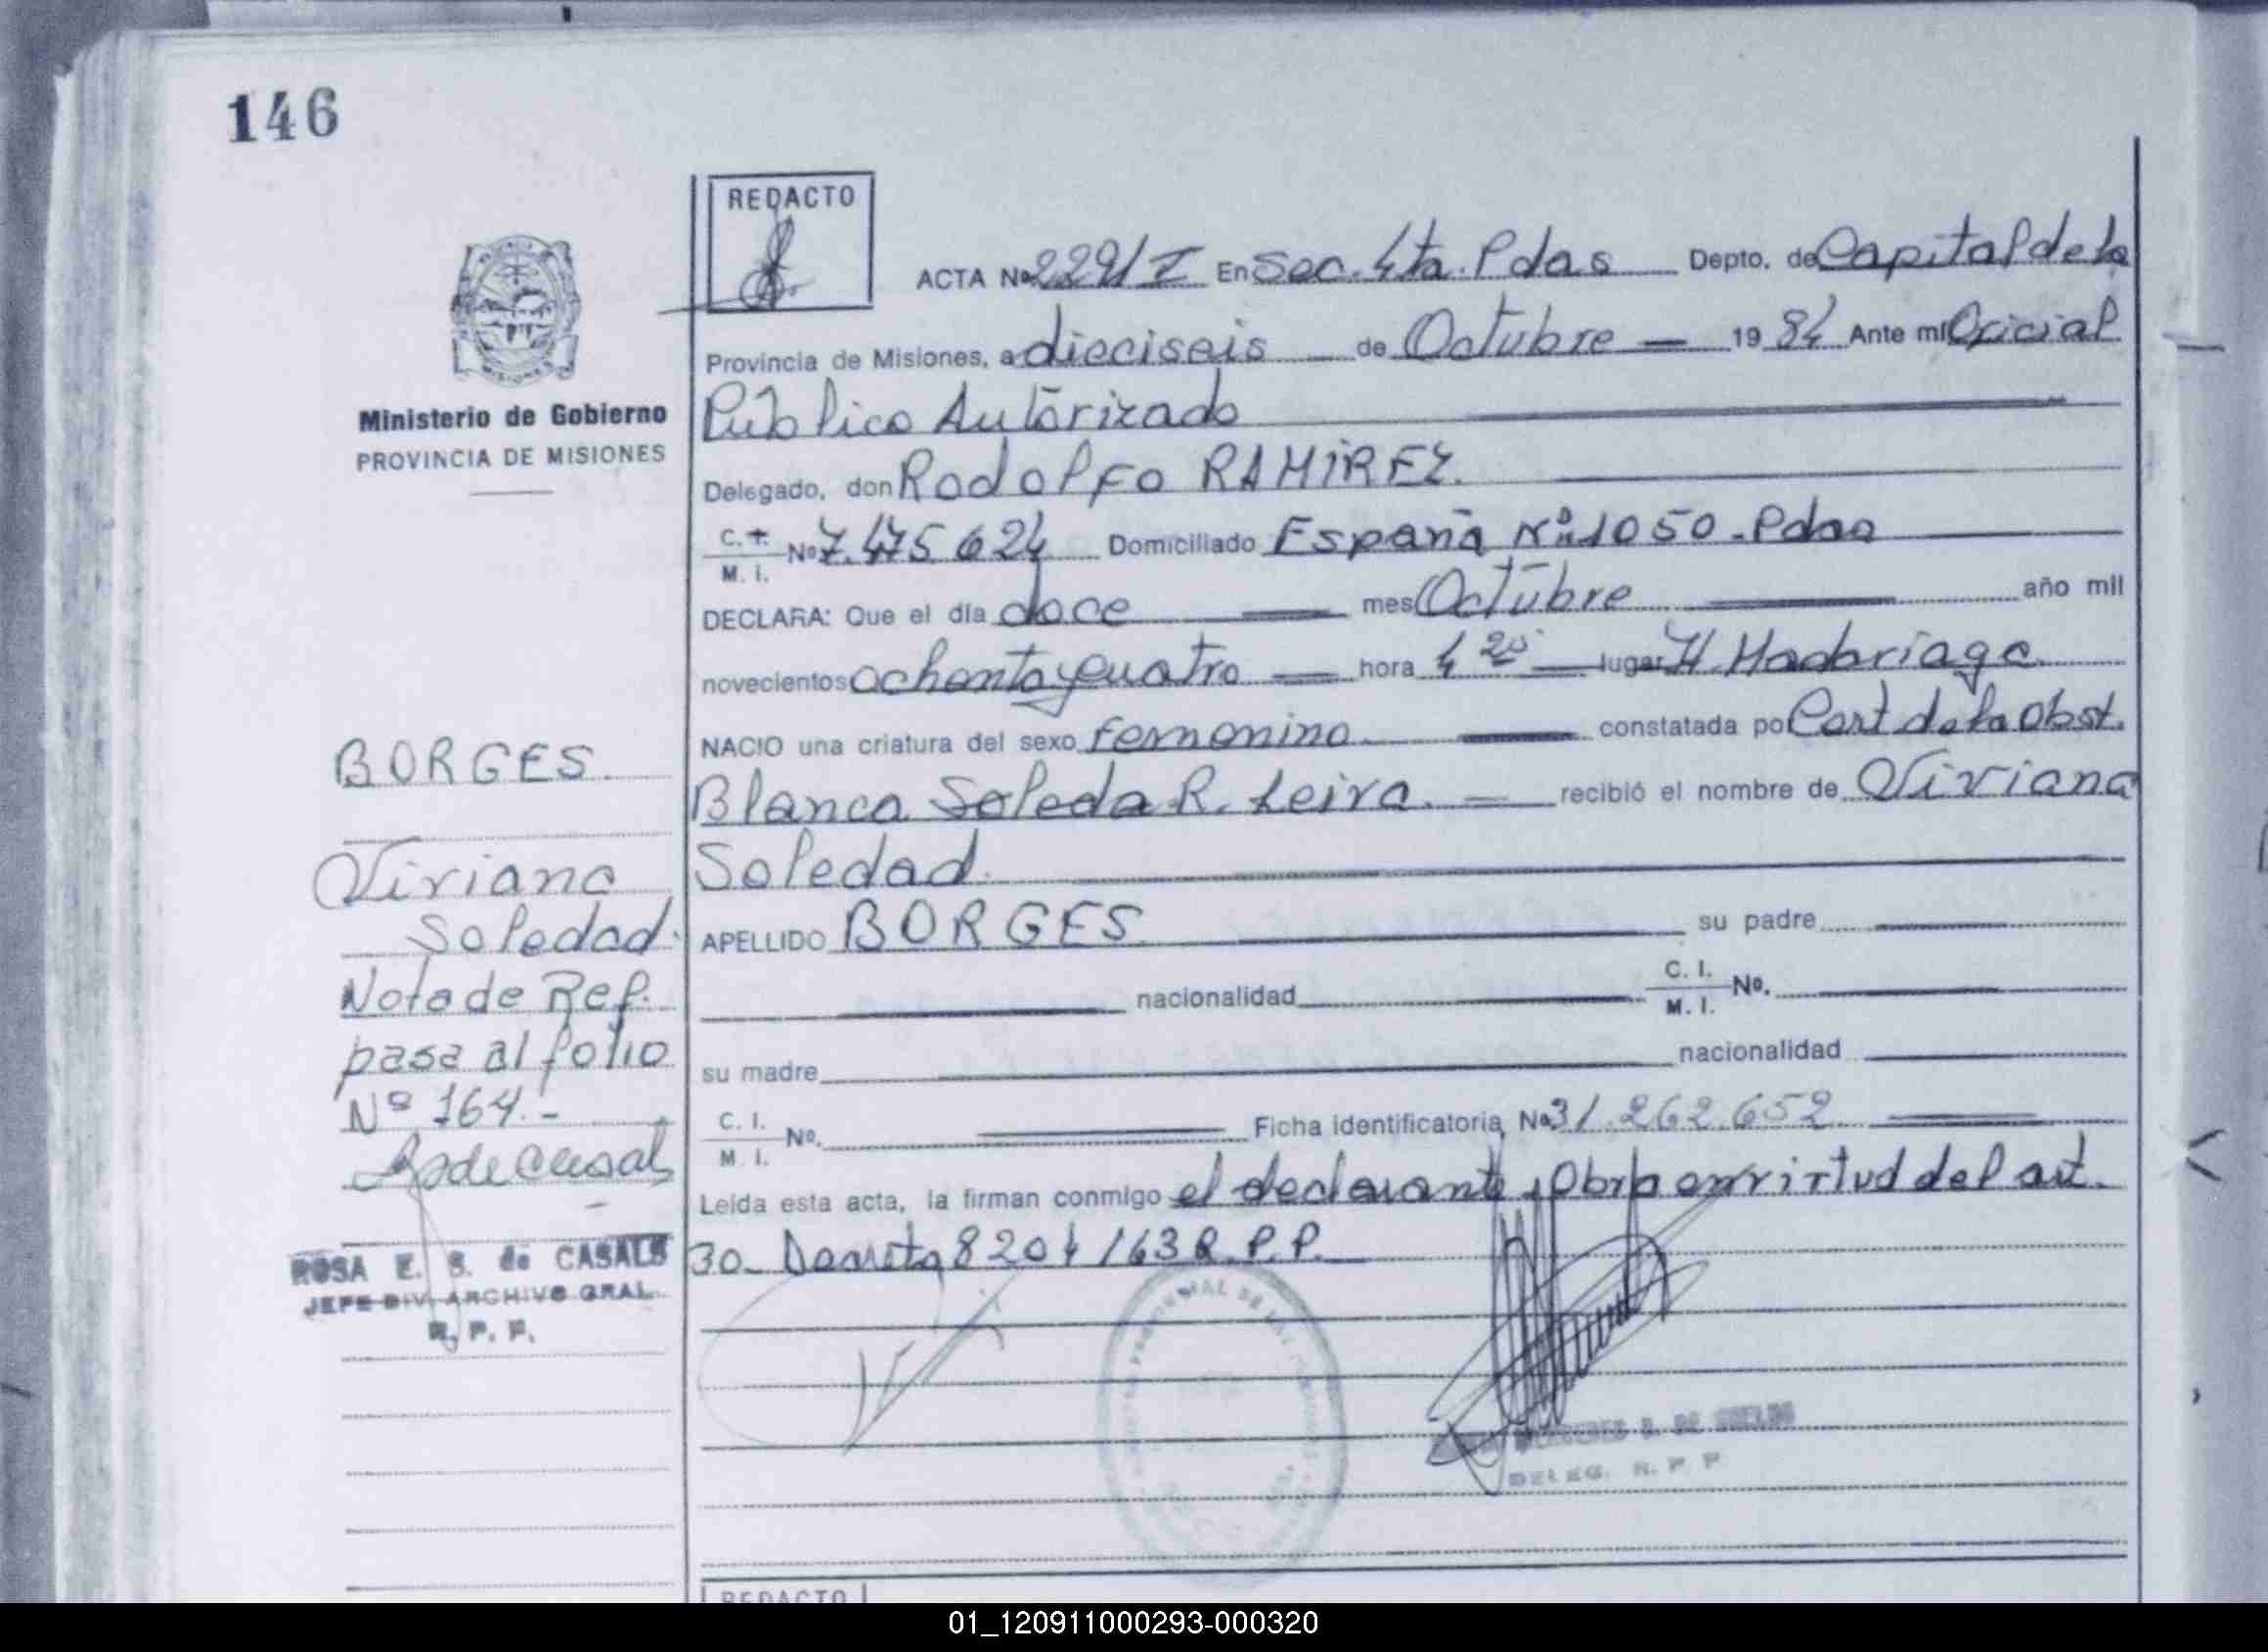 146
REDACTO
ACTA Nº 229/I En Sec. 4ta. Pdas Depto. de Capital de la
Provincia de Misiones, a dieciseis de Octubre 19 84 Ante mi Oficial
Público Autorizado
Delegado, don Rodolfo RAMIREZ.
C. I. M. I. Nº 7.475.624 Domiciliado España Nº 1050 - Pdas
DECLARA: Que el día doce mes Octubre año mil
novecientos ochenta y cuatro hora 4 20 lugar H. Madariaga
NACIO una criatura del sexo femenino constatada por Cert de la Obst.
Blanca Soleda R. Leiva. recibió el nombre de Viviana
Soledad.
APELLIDO BORGES su padre
nacionalidad C. I. M. I. Nº.
su madre nacionalidad
C. I. M. I. Nº. Ficha identificatoria Nº 31.262.652
Leída esta acta, la firman conmigo el declarante, Obra en virtud del art.
30 - Decreto 8204/63 R.P.P.
Ministerio de Gobierno
PROVINCIA DE MISIONES
BORGES.
Viviana
Soledad.
Nota de Ref.
pasa al folio
Nº 164.-
ROSA E. S. de CASALS
JEFE DIV. ARCHIVO GRAL.
R. P. P.
DE
DELEG. R. P. P
REDACTO
01_120911000293-000320